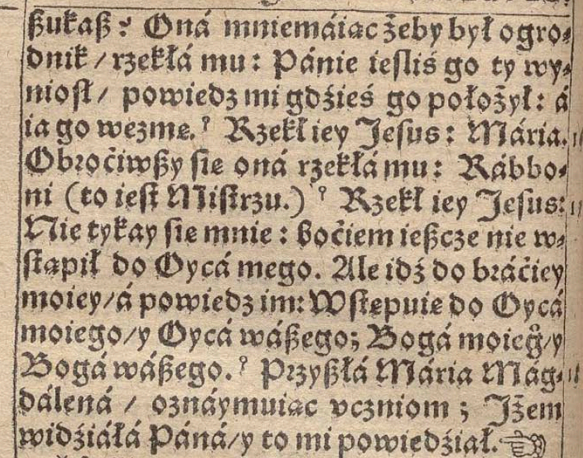 ßukaß? Oná mniemáiac żeby był ogro⸗
dnik / rzekłá mu: Pánie ieśliś go ty wy⸗
niosł / powiedz mi gdźieś go położył: á
ia go wezmę. Rzekł iey Jesus: Mária.
Obroćiwßy się oná rzekłá mu: Rábbo⸗
ni (to iest Mistrzu.) Rzekł iey Jesus:
Nie tykay się mnie: boćiem ießcze nie w⸗
stąpił do Oycá mego. Ale idź do bráćiey
moiey / á powiedz im: Wstępuię do Oycá
moiego / y Oycá wáßego; Bogá moieg̊ / y
Bogá wáßego. Przyßłá Mária Mág⸗
dálená / oznáymuiąc vczniom; Jżem
widźiáłá Páná / y to mi powiedźiał. ☜